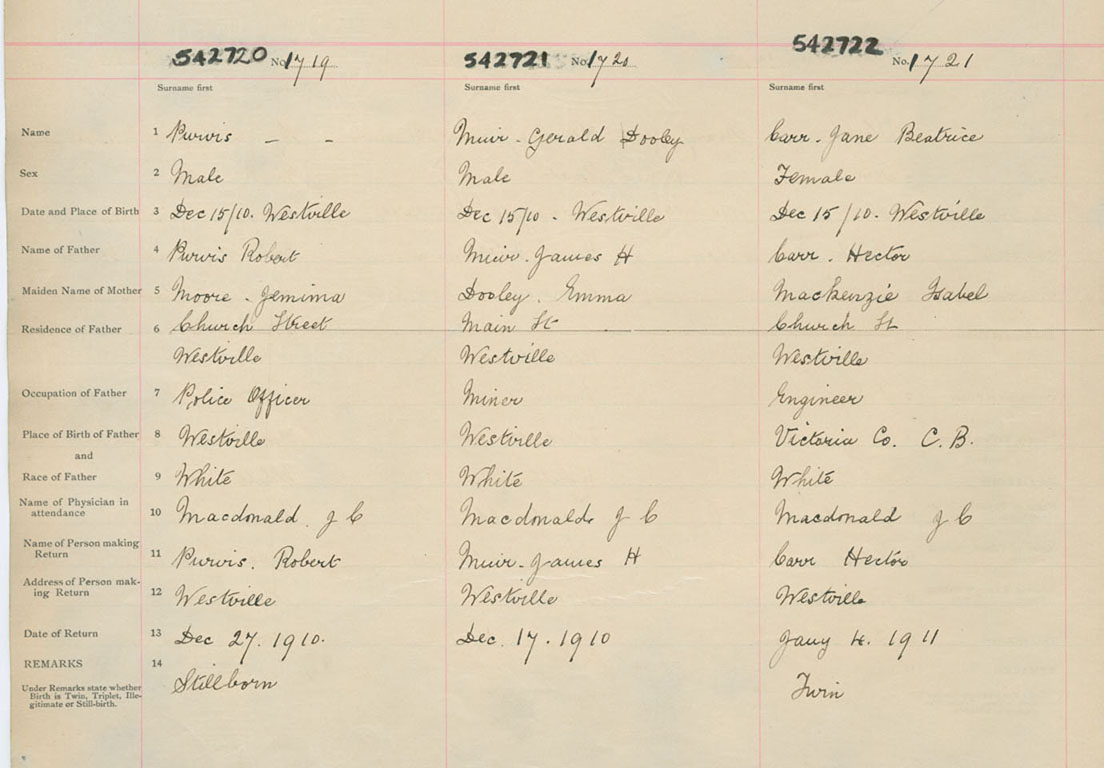 542720 No. 1719 542721 No. 1720 542722 No. 1721
Surname first Surname first Surname first
Name 1 Purvis - - Muir - Gerald Dooley Carr - Jane Beatrice
Sex 2 Male Male Female
Date and Place of Birth 3 Dec 15/10. Westville Dec 15/10 - Westville Dec 15/10. Westville
Name of Father 4 Purvis Robert Muir. James H Carr. Hector
Maiden Name of Mother 5 Moore - Jemima Dooley. Emma Mackenzie Isabel
Residence of Father 6 Church Street Main St Church St
Westville Westville Westville
Occupation of Father 7 Police Officer Miner Engineer
Place of Birth of Father 8 Westville Westville Victoria Co. C.B.
and
Race of Father 9 White White White
Name of Physician in
attendance 10 Macdonald J C Macdonald J C Macdonald J C
Name of Person making
Return 11 Purvis. Robert Muir - James H Carr Hector
Address of Person mak-
ing Return 12 Westville Westville Westville
Date of Return 13 Dec 27. 1910. Dec. 17. 1910 Jany 4. 1911
REMARKS 14 Stillborn Twin
Under Remarks state whether
Birth is Twin, Triplet, Ille-
gitimate or Still-birth.